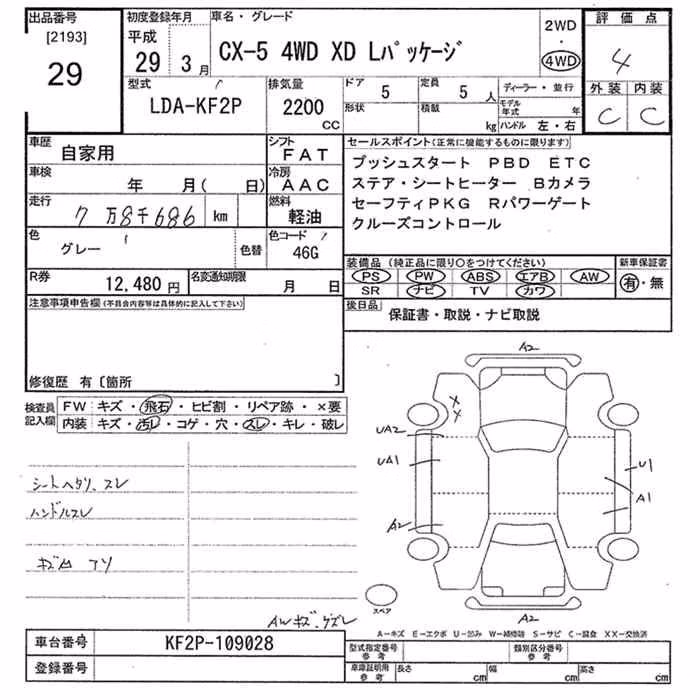 出品番号 初度登録年月 車名・グレード 評価点
[2193] 平成 2WD
29 29 3月 CX-5 4WD XD Lパッケージ ・ 4
4WD
型式 排気量 ドア 5 定員 5人 ディーラー・並行 外装 内装
LDA-KF2P 2200 CC 形状 積載 kg モデル年式 年 C C
ハンドル 左・右
車歴 自家用 シフト FAT セールスポイント(正常に機能するものに限ります)
車検 年 月( 日) 冷房 AAC プッシュスタート PBD ETC
走行 7万8千686 km 燃料 軽油 ステア・シートヒーター Bカメラ
セーフティPKG Rパワーゲート
クルーズコントロール
色 グレー 色替 色コード 46G
装備品(純正品に限り○をつけてください) 新車保証書
R券 12,480円 名変通知期限 月 日 PS PW ABS エアB AW 有・無
SR ナビ TV カワ
注意事項申告欄(不具合内容等は具体的に記入して下さい) 後日品 保証書・取説・ナビ取説
修復歴 有〔箇所 〕
検査員記入欄 FW キズ・飛石・ヒビ割・リペア跡・×要
内装 キズ・汚レ・コゲ・穴・スレ・キレ・破レ
A2
X
X
UA2
UA1 U1
A1
A2
シートヘタリ、スレ
ハンドルスレ
スペア
AWキズ、ゲズレ A2
A-キズ E-エクボ U-凹み W-補修跡 S-サビ C-腐食 XX-交換済
車台番号 KF2P-109028 型式指定番号 参考 類別区分番号 参考
登録番号 車庫証明用 参考 長さ cm 幅 cm 高さ cm